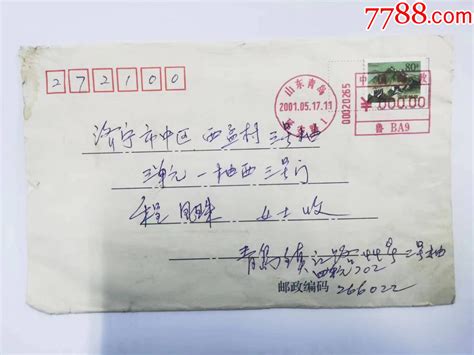 7788.com
272100
80分
中国邮政
¥000.00
鲁 BA9
00020265
山东青岛
2001.05.17.11
济宁市中区 西益村 三号楼
三单元 一楼西 三号门
程 女士收
青岛镇江路 二号楼
四单元202
邮政编码 266022